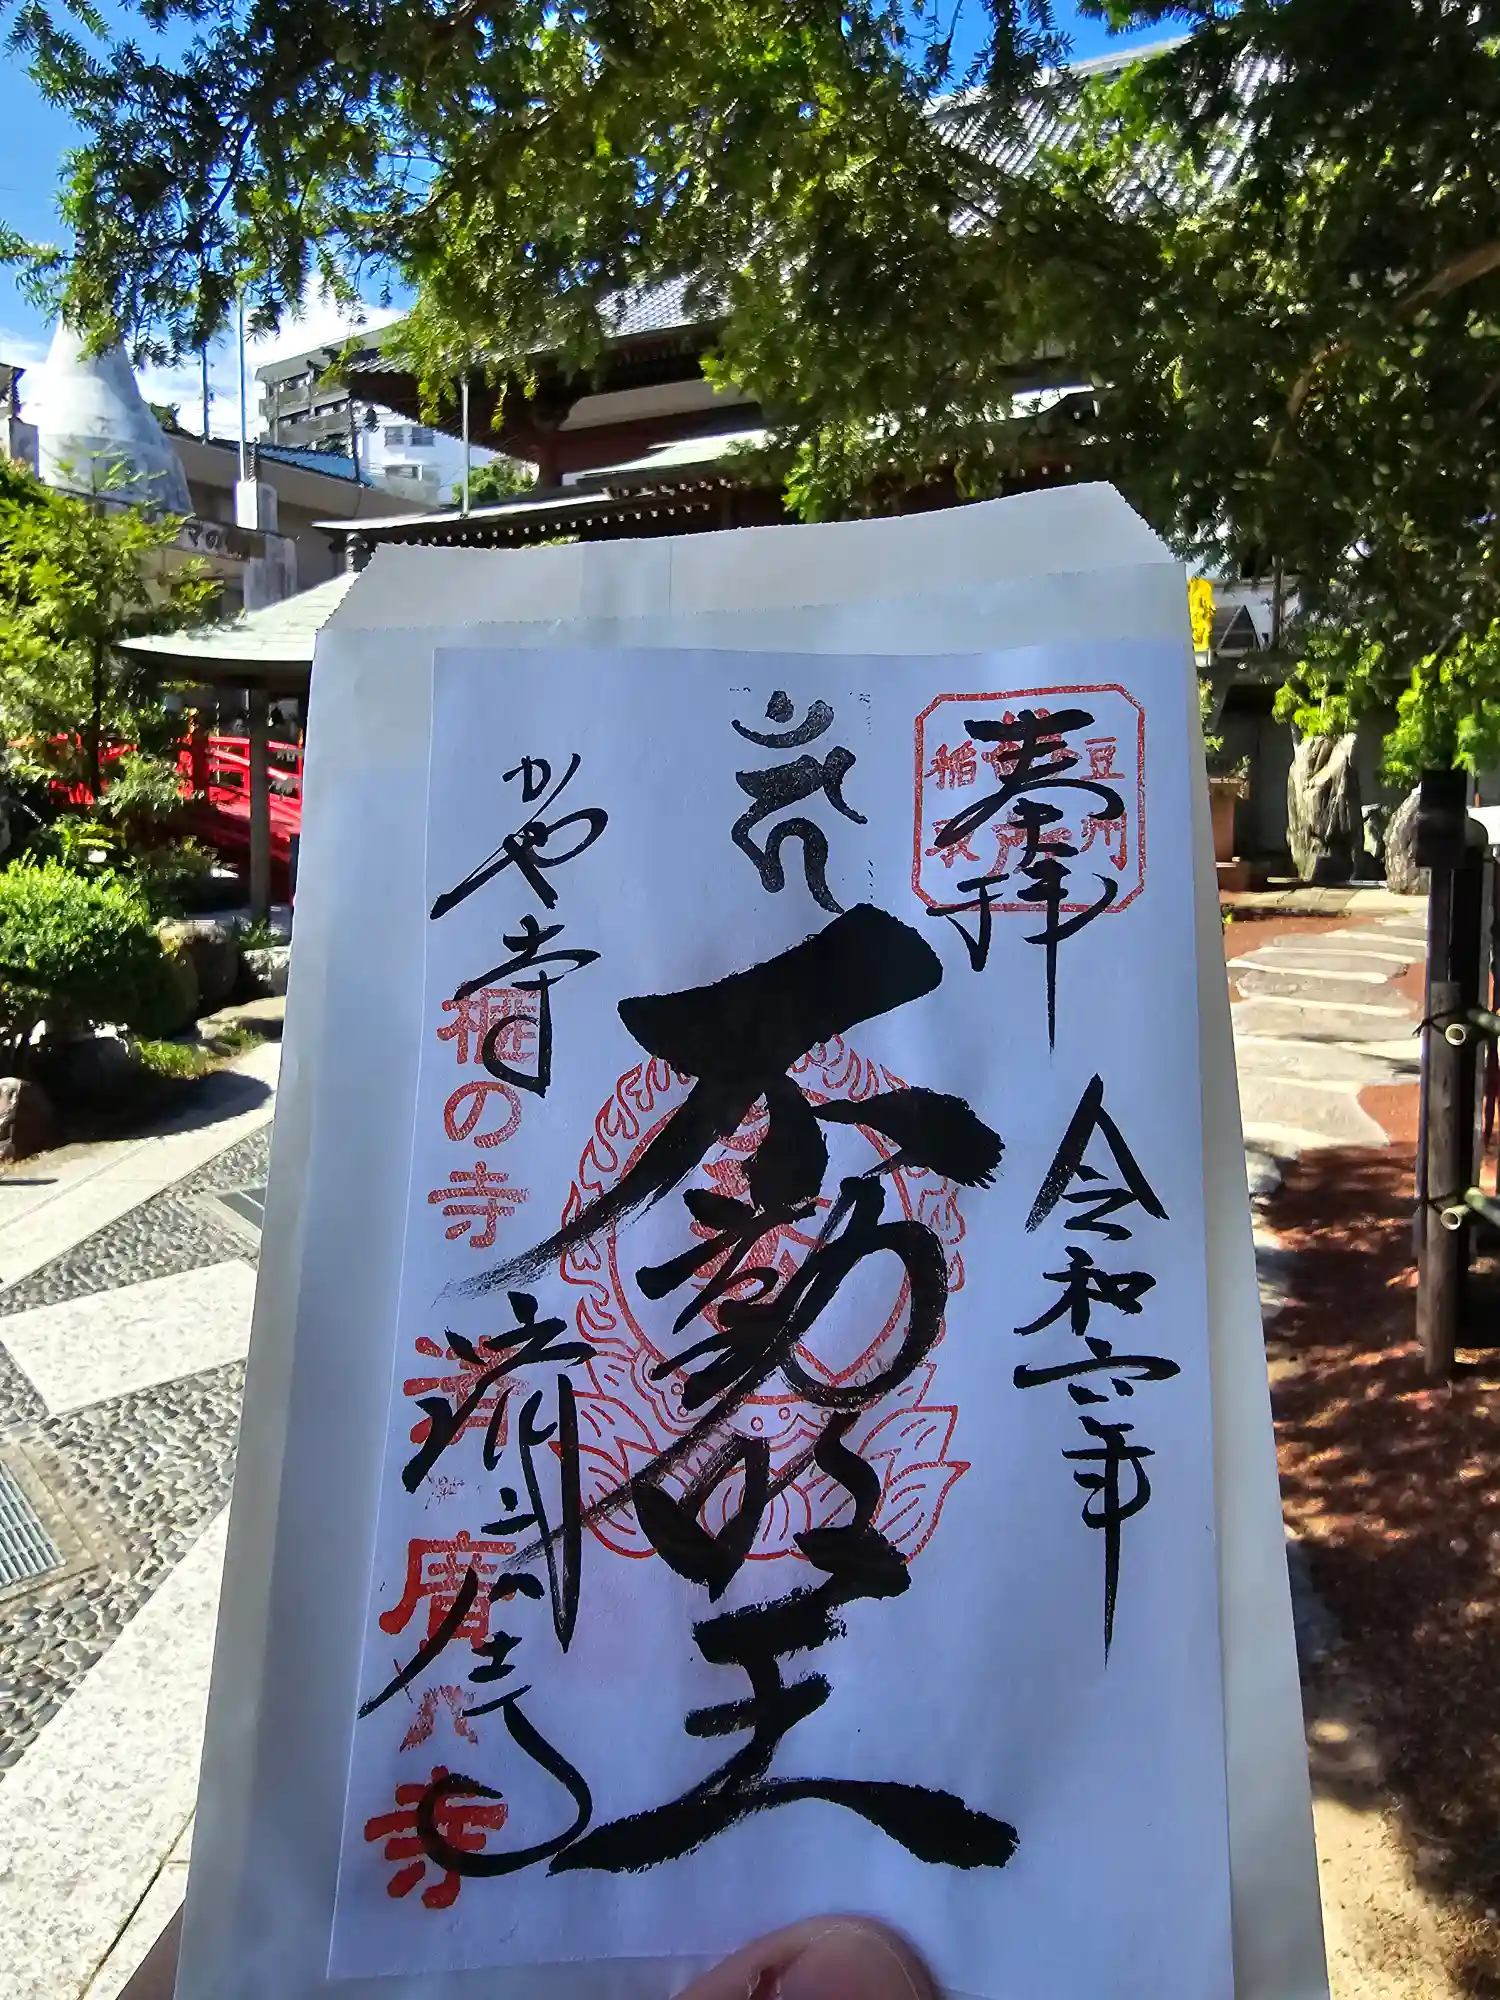 奉拝
豆州
稲取
令和六年
不動明王
かや寺
済廣寺
榧の寺
濟廣寺